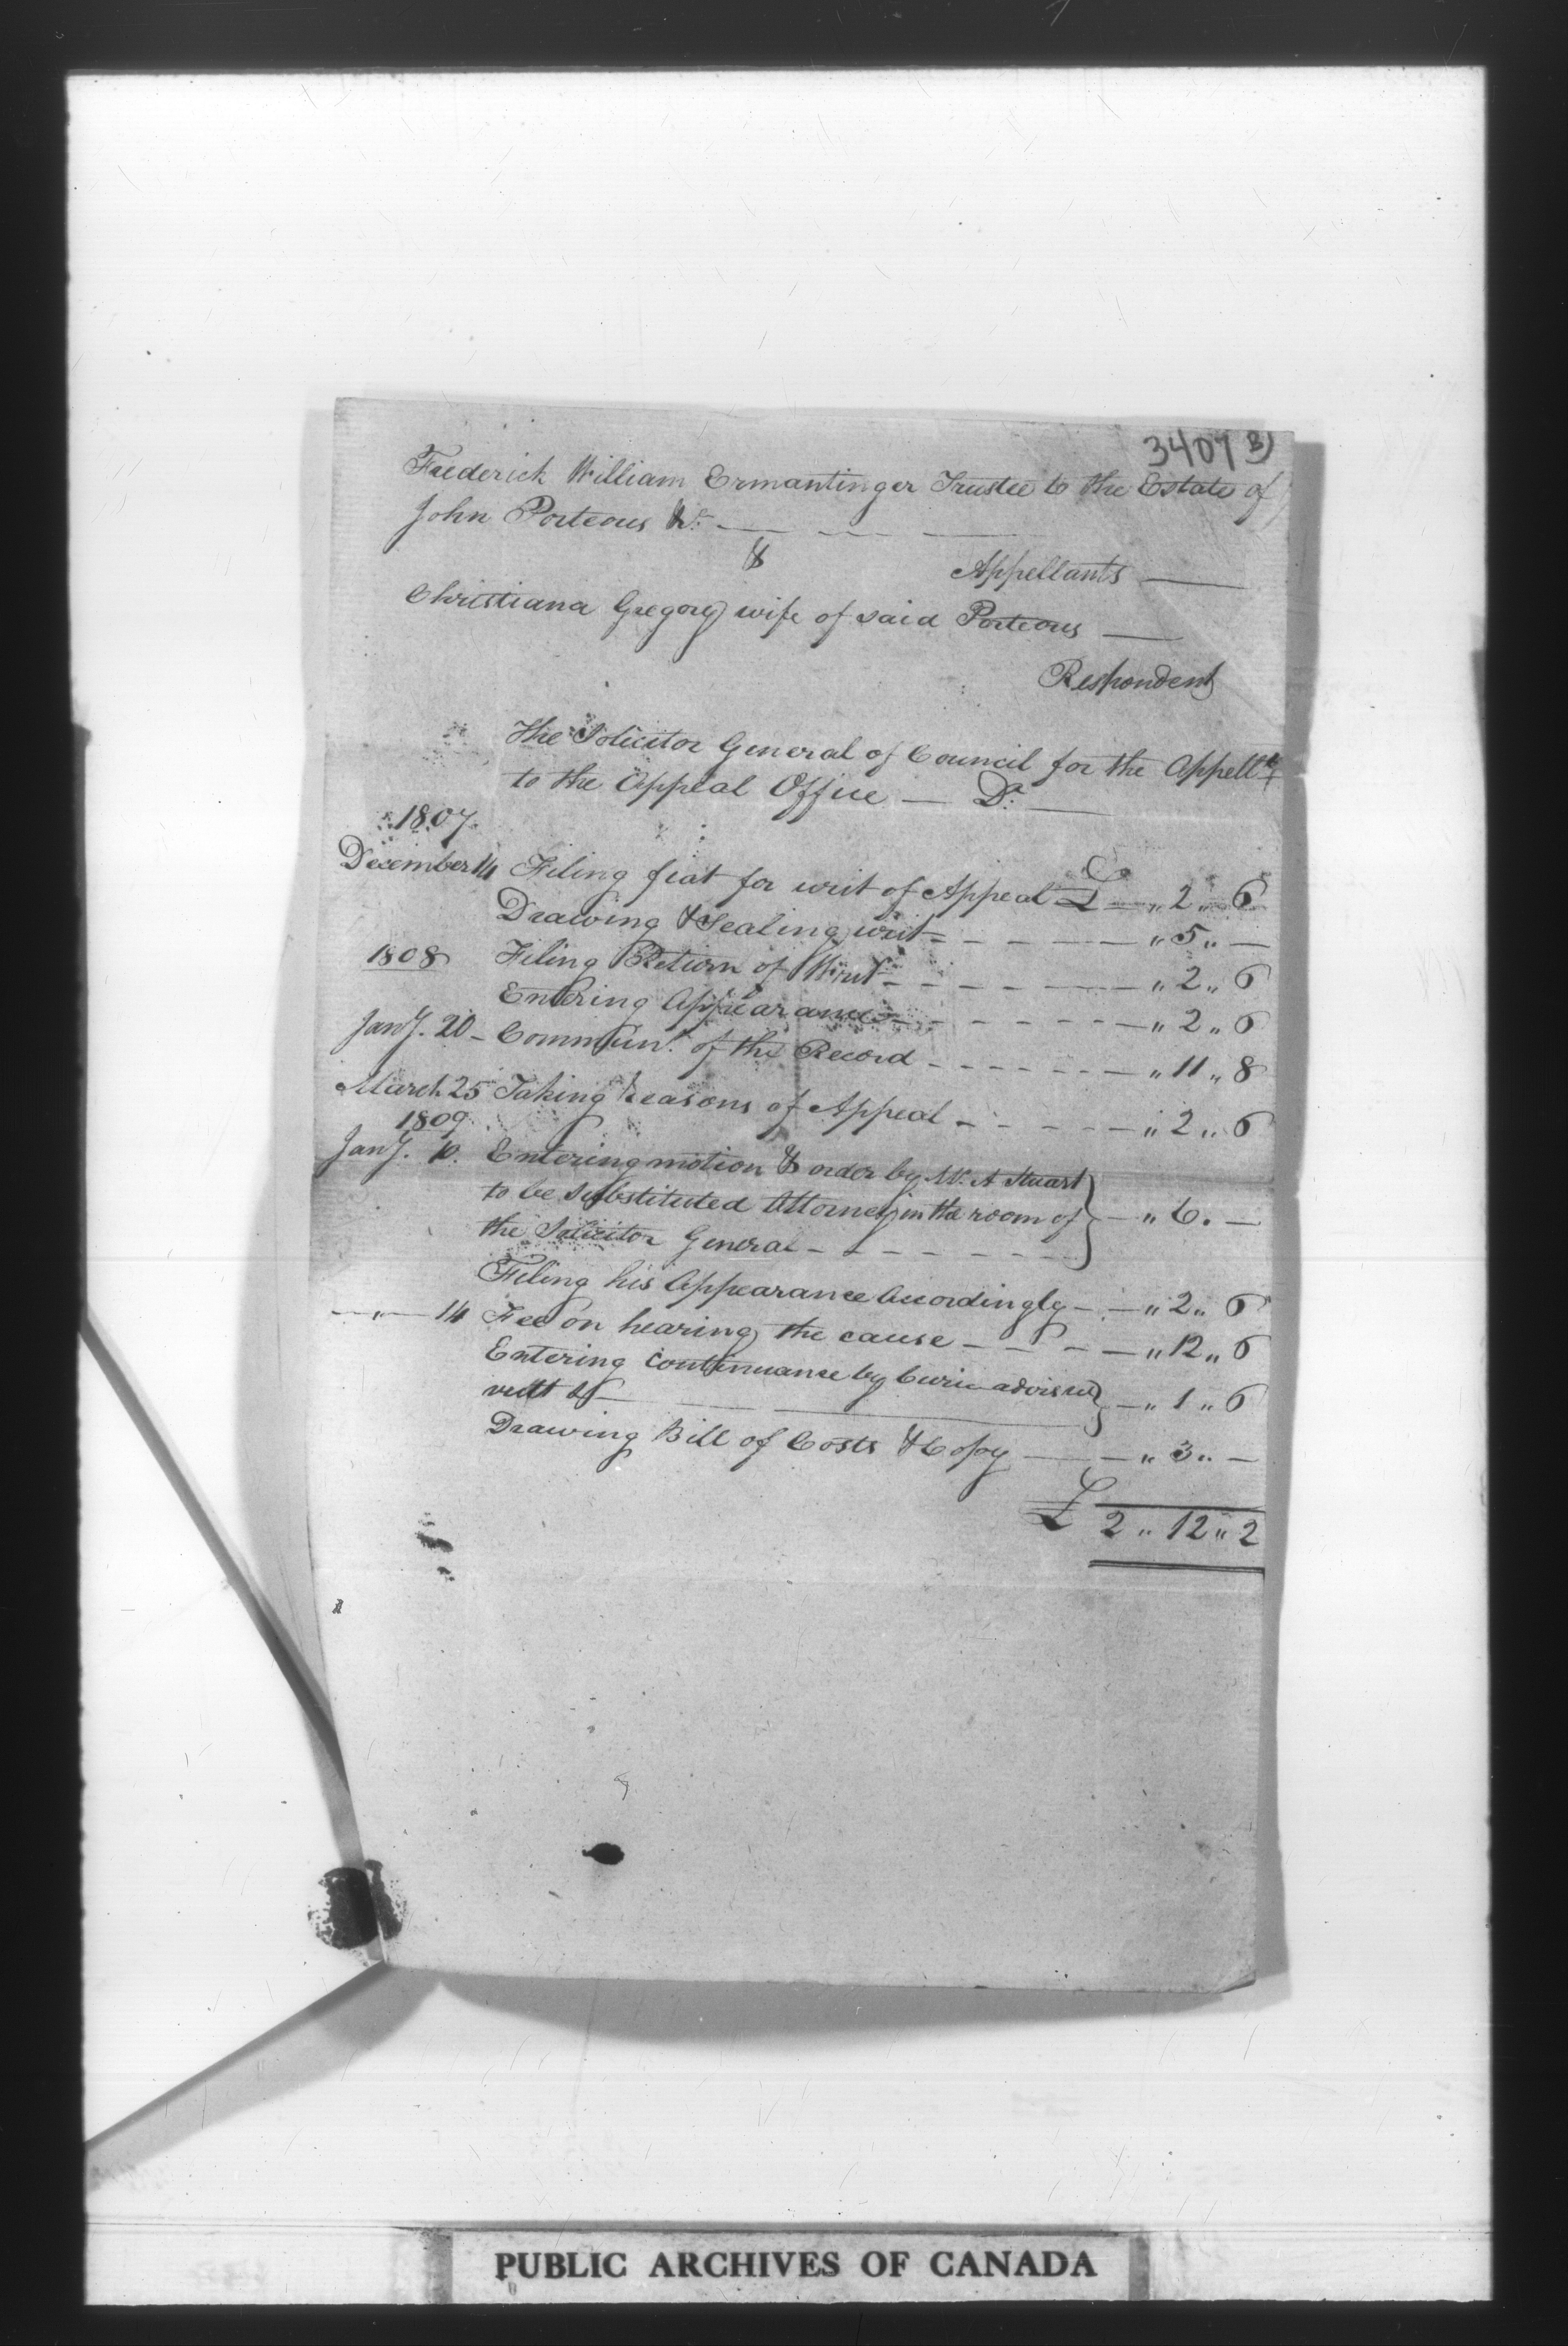 3407 B)
Frederick William Ermantinger Trustee to the Estate of
John Porteous &c.
&
Appellants
Christiana Gregory wife of said Porteous
Respondent
The Solicitor General of Council for the Appellts
to the Appeal Office — Dr.
1807
December 14 Filing fiat for writ of Appeal £ — " 2 " 6
Drawing & Sealing writ - - - " 5 " —
1808 Filing Return of Writ - - - " 2 " 6
Entering Appearance - - - " 2 " 6
Jany. 20 - Commun. of the Record - - - " 11 " 8
March 25 Taking reasons of Appeal - - - " 2 " 6
1809
Jany. 10. Entering motion & order by Mr. A Stuart
to be substituted Attorney in the room of } — " 6. —
the Solicitor General - - -
Filing his Appearance Accordingly - — " 2 " 6
— " — 14 Fee on hearing the cause - - - " 12 " 6
Entering continuance by Curia advisare
vult &c } — " 1 " 6
Drawing Bill of Costs & Copy — " 3 " —
£ 2 " 12 " 2
PUBLIC ARCHIVES OF CANADA